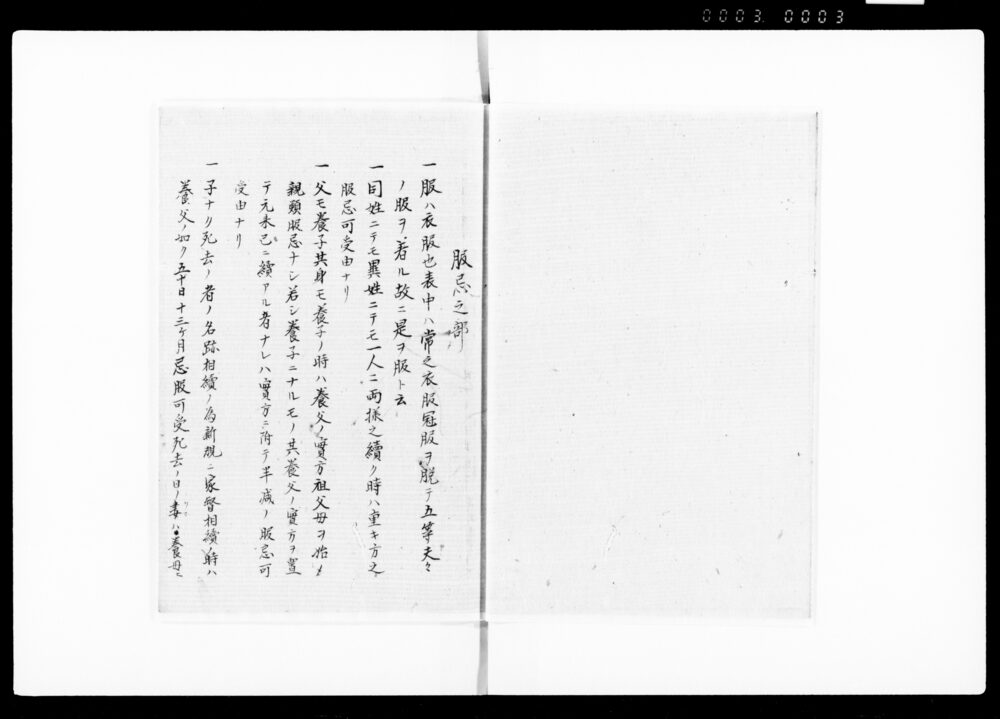 0003 0003
服忌之部
一服ハ衣服也表中ハ常之衣服冠服ヲ脱テ五等夫々
ノ服ヲ着ル故ニ是ヲ服ト云
一同姓ニテモ異姓ニテモ一人ニ両様之續ク時ハ重キ方之
服忌可受由ナリ
一父モ養子其身モ養子ノ時ハ養父ノ實方祖父母ヲ始メ
親類服忌ナシ若シ養子ニナルモノ其養父ノ實方ヲ
テ元来己ニ續アル者ナレハ實方ニ附テ半减ノ服忌可
受由ナリ
一子ナリ死去ノ者ノ名跡相續ノ為新規ニ家督相續ノ時ハ
養父ノ如ク五十日十三ケ月忌服可受死去ノ日ノ妻ハ養母ニ